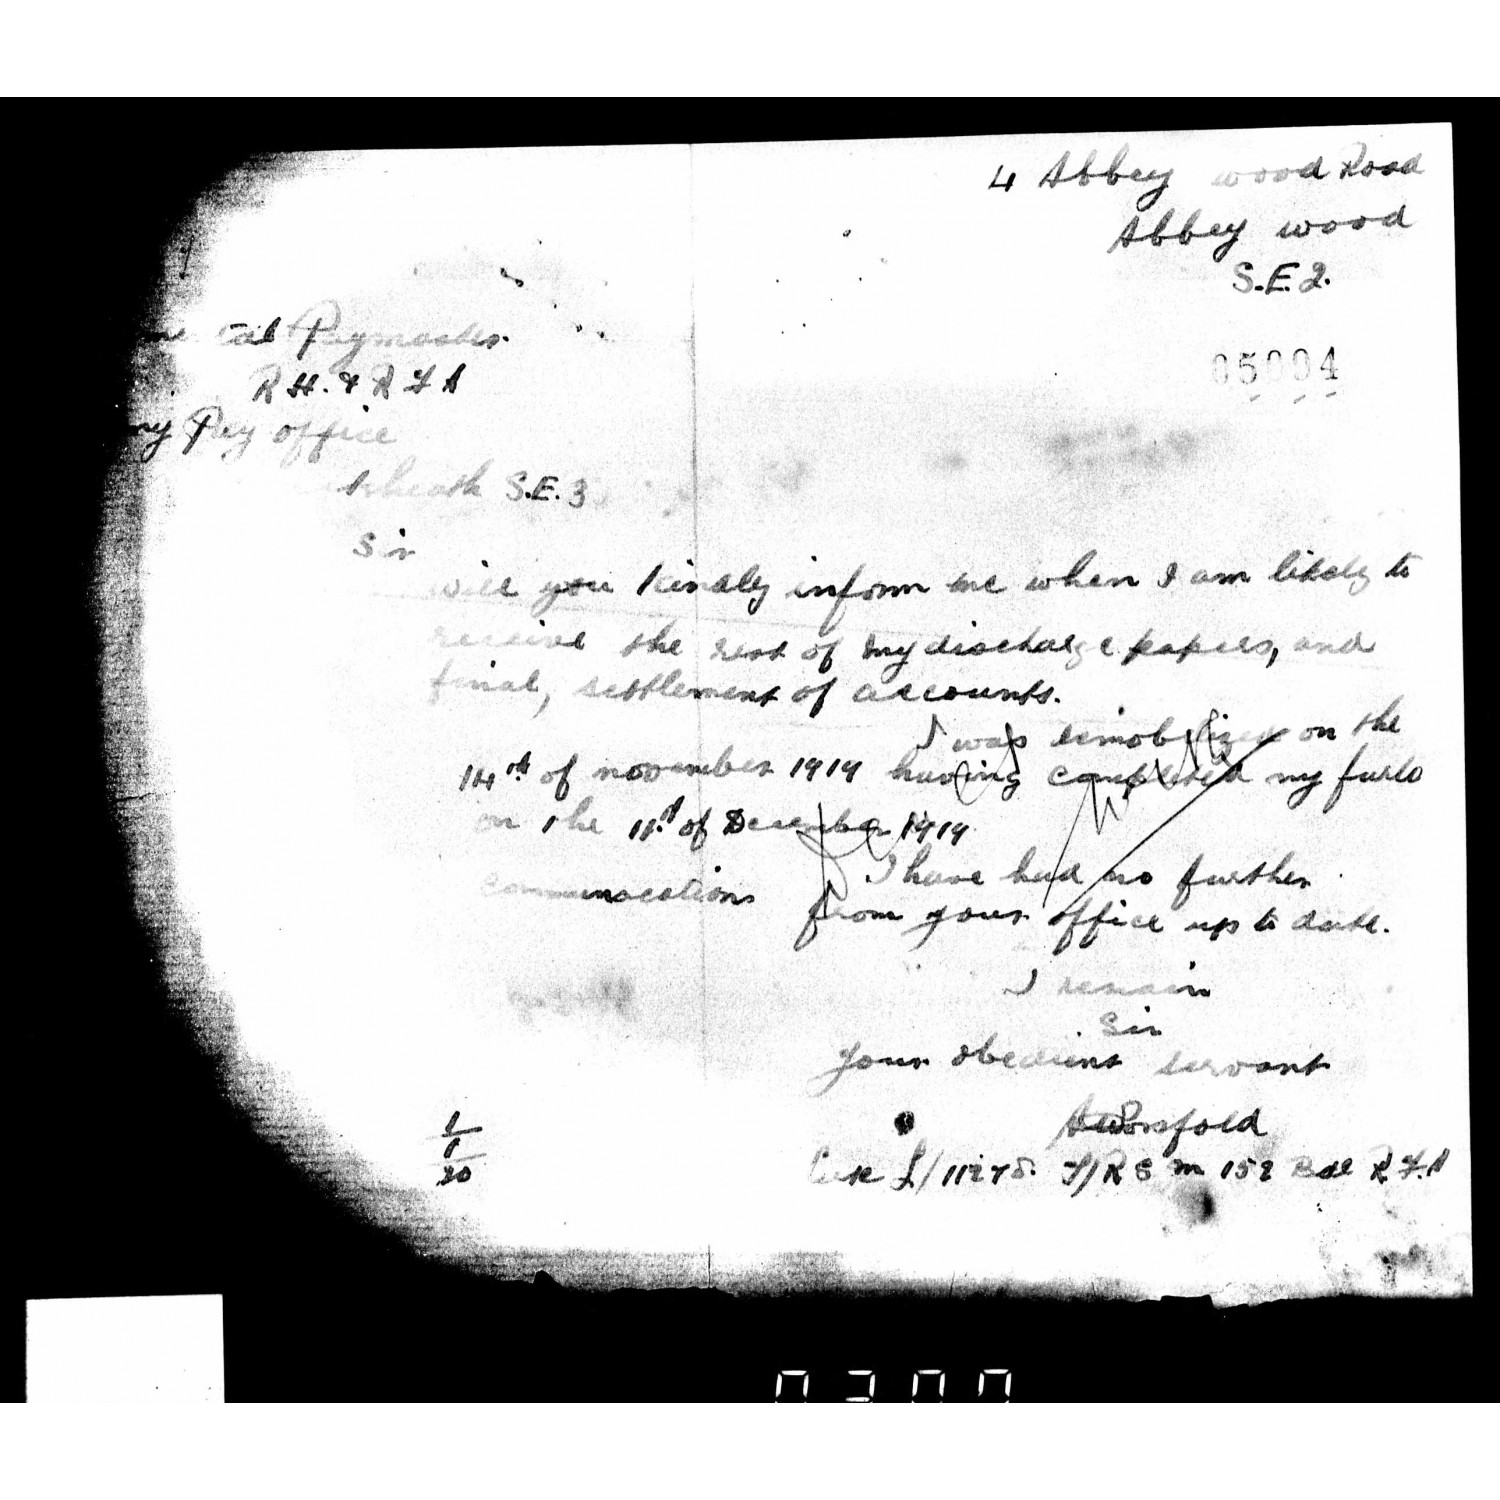 4 Abbey wood Road
Abbey wood
S.E.2.
05004
Paymaster
R H. & R F A
Pay office
S.E. 3
Sir
will you kindly inform me when I am likely to
receive the rest of my discharge papers, and
final, settlement of accounts.
I was demobilized on the
14th of november 1919 having completed my furlo
on the 11th of December 1919
I have had no further
communocations from your office up to date.
I remain
Sir
your obedient servant
1/1/20
L/11278. 152 R.F.A
0300